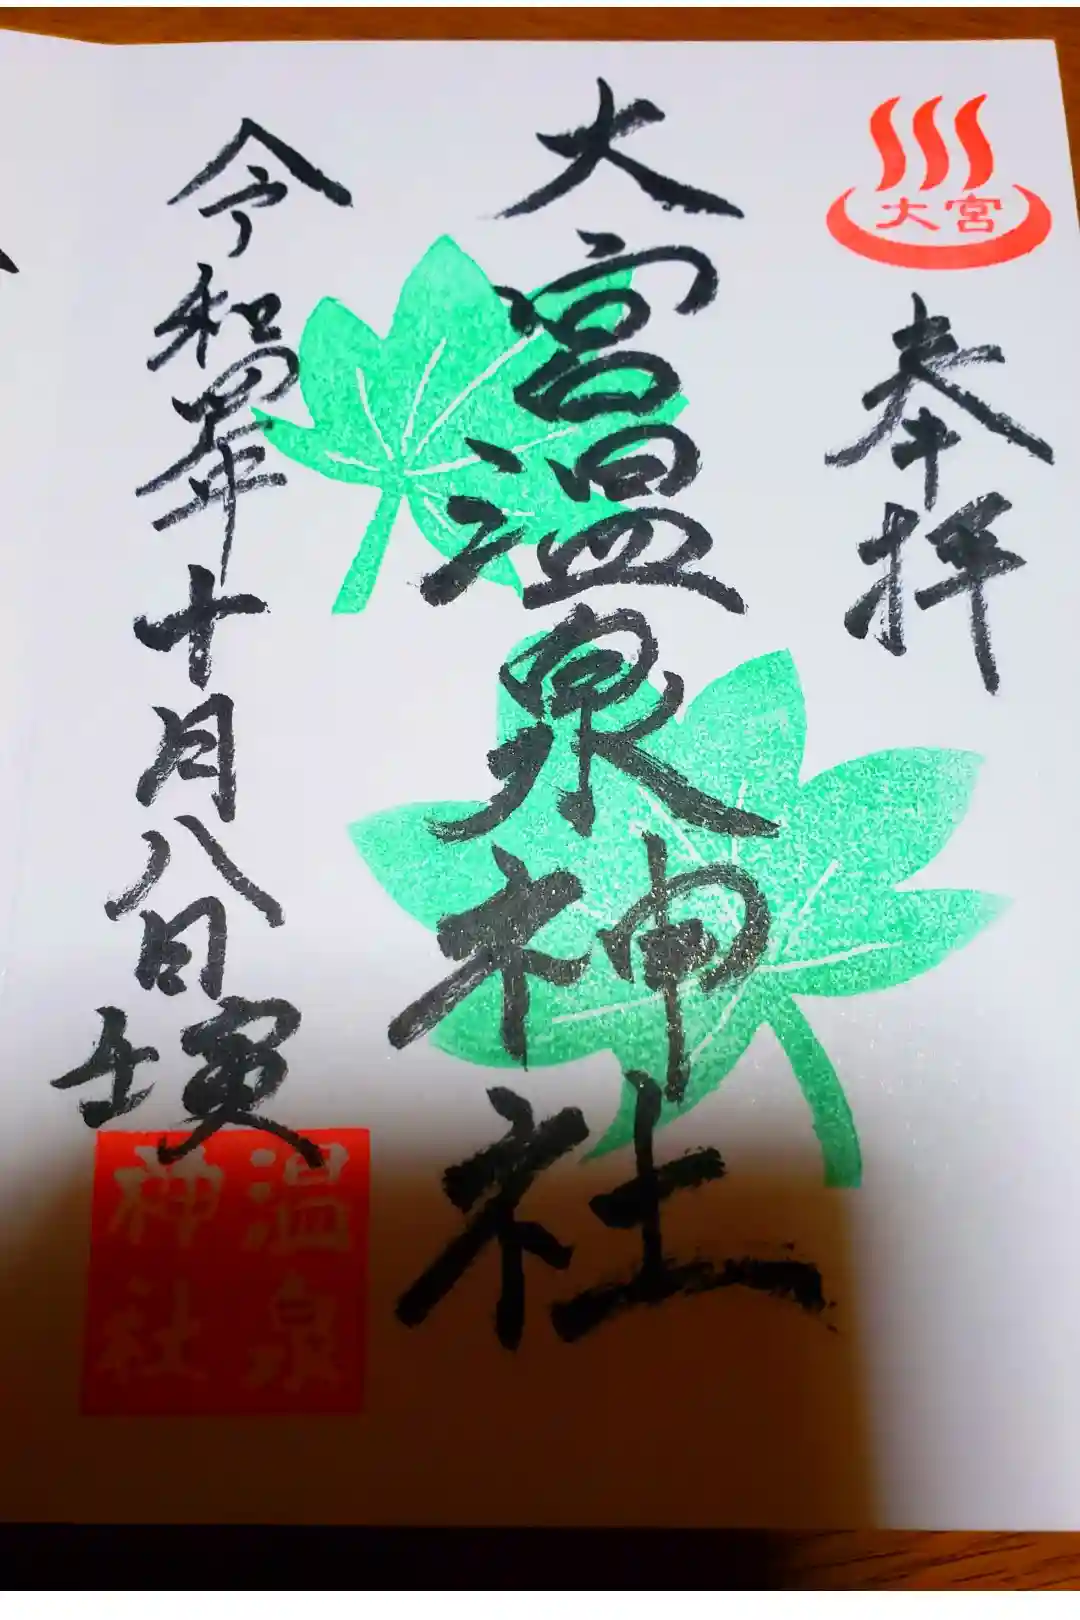 大宮
奉拝
大宮温泉神社
令和四年十月八日
温泉
神社